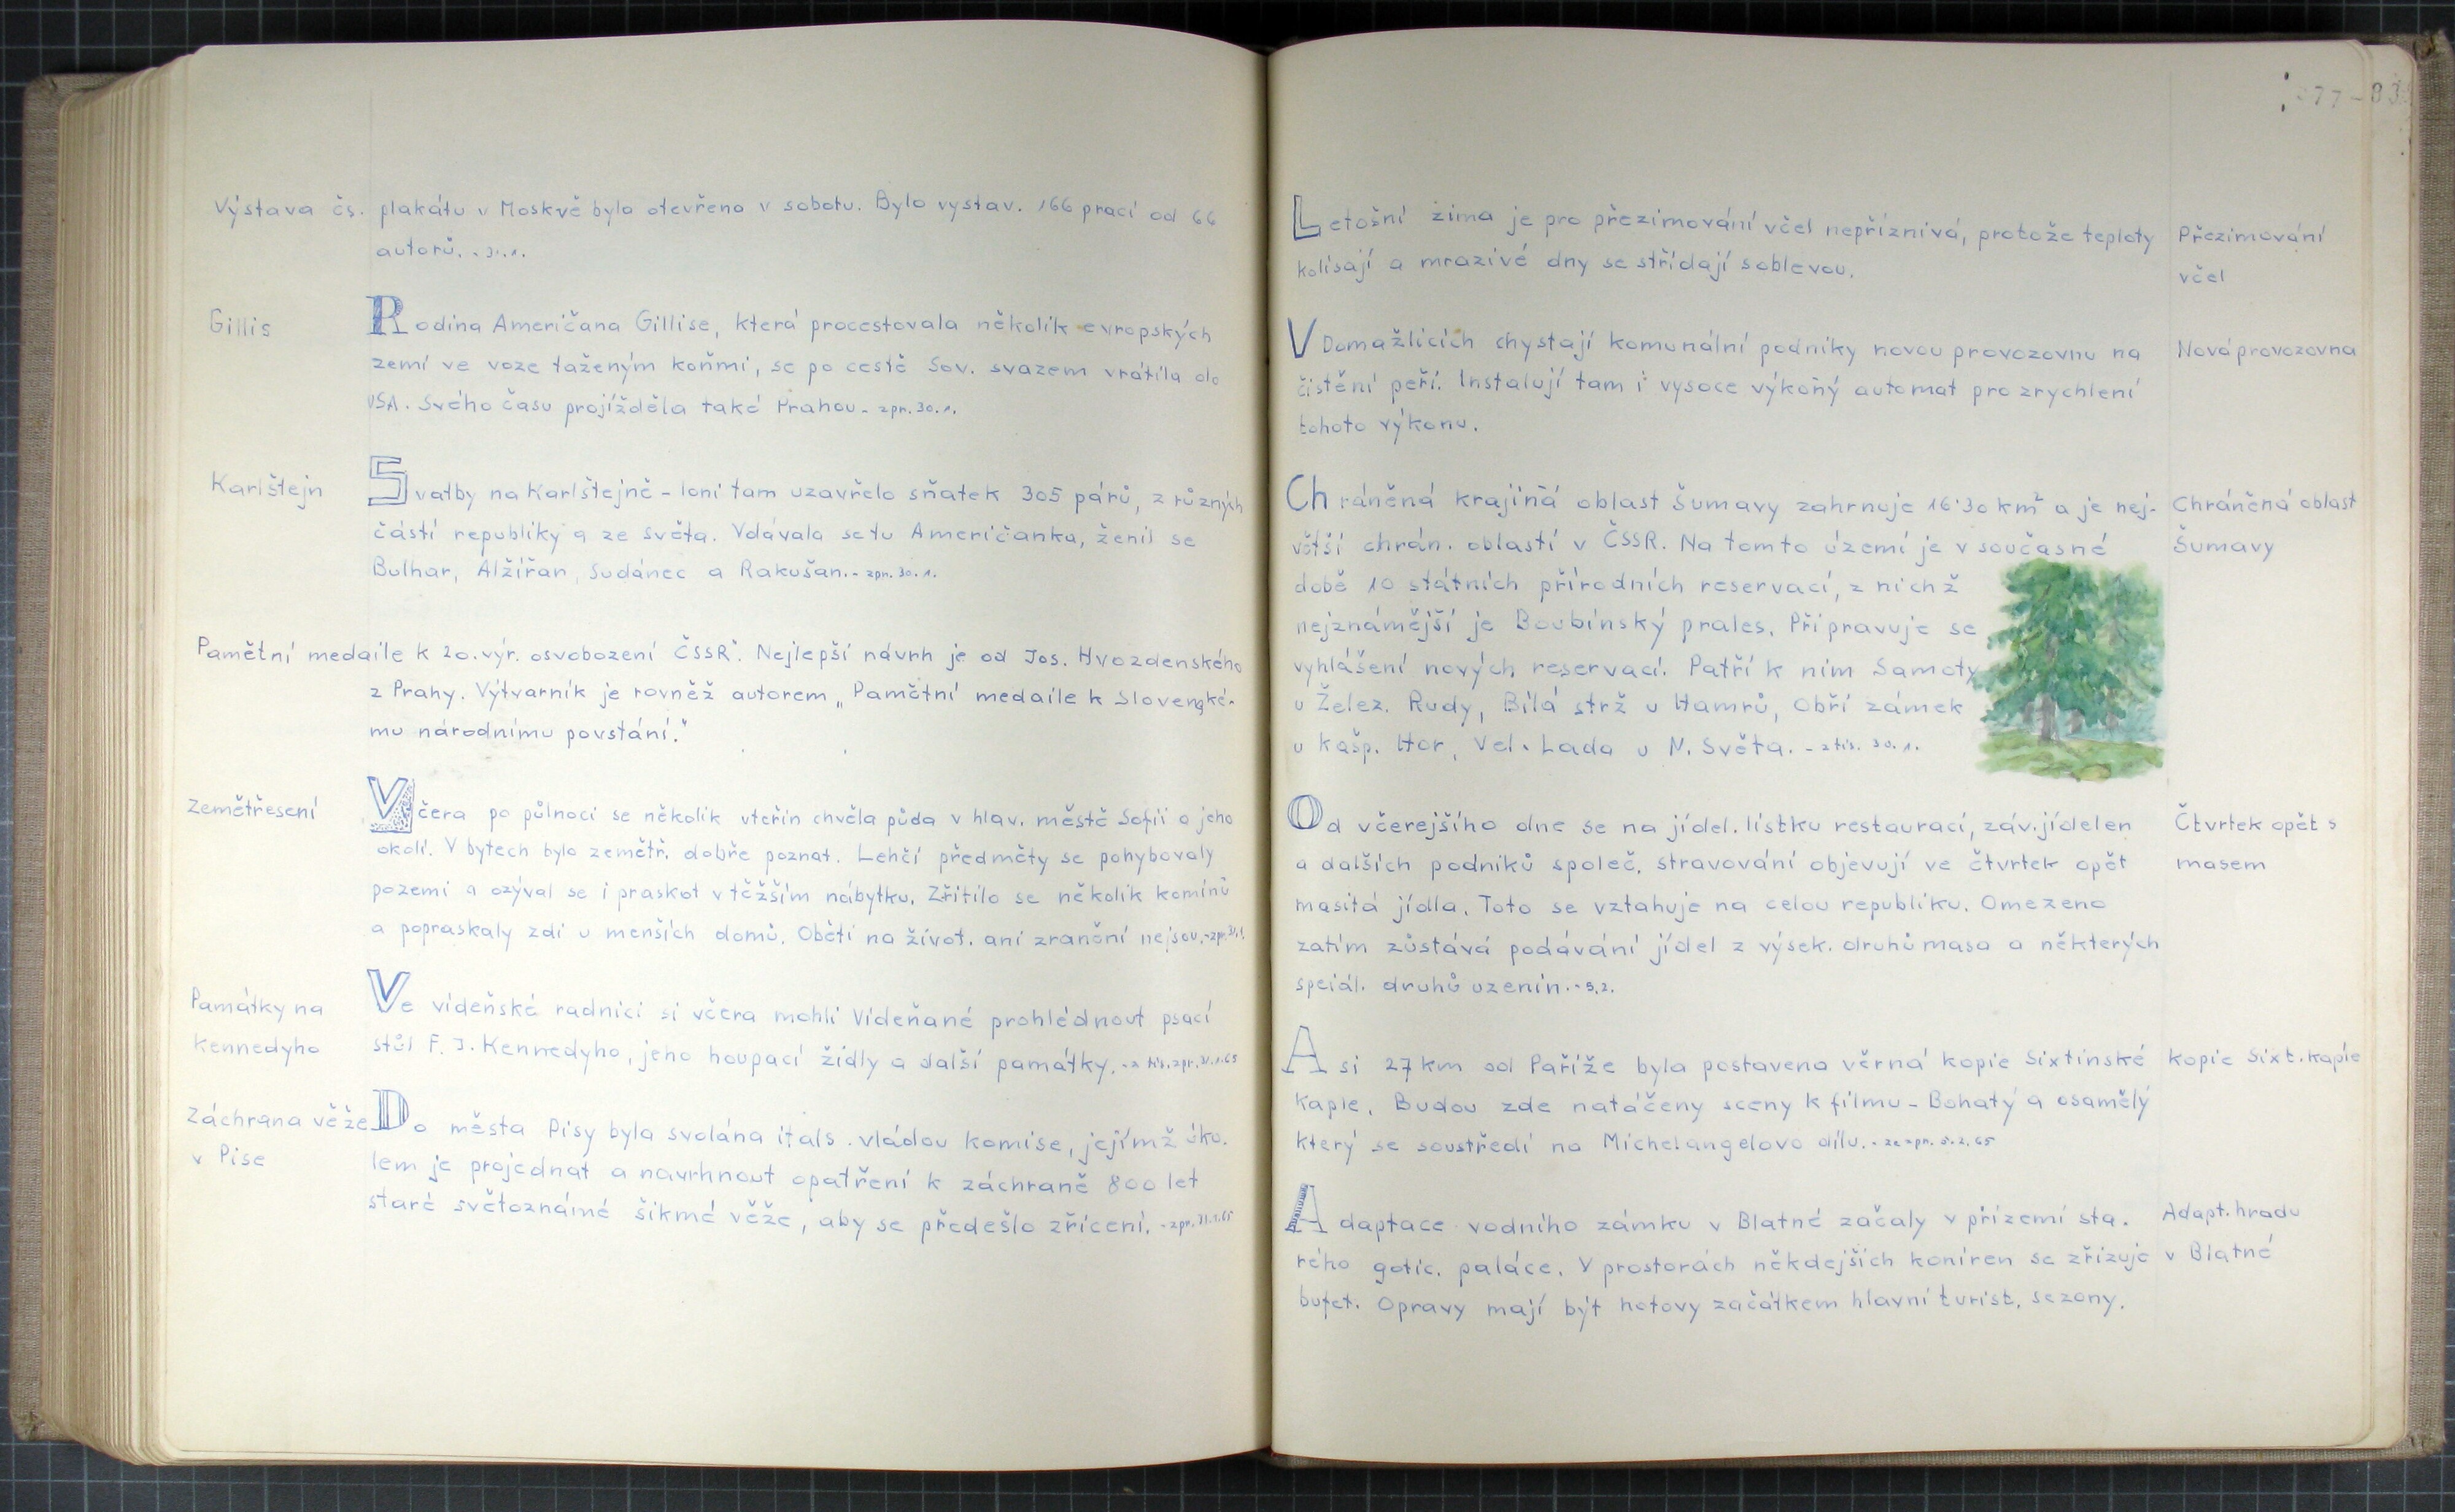 Výstava čs. plakátu v Moskvě byla otevřena v sobotu. Bylo vystav. 166 prací od 66
autorů. - 31.1.
Gillis
Rodina Američana Gillise, která procestovala několik evropských
zemí ve voze taženým koňmi, se po cestě Sov. svazem vrátila do
USA. Svého času projížděla také Prahou. - zpr. 30.1.
Karlštejn
Svatby na Karlštejně - loni tam uzavřelo sňatek 305 párů, z různých
částí republiky a ze světa. Vdávala se tu Američanka, ženil se
Bulhar, Alžířan, Sudánec a Rakušan. - zpr. 30.1.
Pamětní medaile k 20. výr. osvobození ČSSR". Nejlepší návrh je od Jos. Hvozdenského
z Prahy. Výtvarník je rovněž autorem „Pamětní medaile k Slovenské-
mu národnímu povstání."
Zemětřesení
Včera po půlnoci se několik vteřin chvěla půda v hlav. městě Sofii a jeho
okolí. V bytech bylo zemětř. dobře poznat. Lehčí předměty se pohybovaly
po zemi a ozýval se i praskot v těžším nábytku. Zřítilo se několik komínů
a popraskaly zdi u menších domů. Oběti na život. ani zranění nejsou. - zpr. 31.1.
Památky na
Kennedyho
Ve vídeňské radnici si včera mohli Vídeňané prohlédnout psací
stůl F. J. Kennedyho, jeho houpací židly a další památky. - z tis. zpr. 31.1.65
Záchrana věže
v Pise
Do města Pisy byla svolána itals. vládou komise, jejímž úko-
lem je projednat a navrhnout opatření k záchraně 800 let
staré světoznámé šikmé věže, aby se předešlo zřícení. - zpr. 31.1.65
77-83
Letošní zima je pro přezimování včel nepříznivá, protože teploty
kolísají a mrazivé dny se střídají s oblevou.
Přezimování
včel
V Domažlicích chystají komunální podniky novou provozovnu na
čistění peří. Instalují tam i vysoce výkoný automat pro zrychlení
tohoto výkonu.
Nová provozovna
Chráněná krajiňá oblast Šumavy zahrnuje 16·30 km² a je nej-
větší chrán. oblastí v ČSSR. Na tomto území je v současné
době 10 státních přírodních reservací, z nichž
nejznámější je Boubínský prales. Připravuje se
vyhlášení nových reservací. Patří k ním Samoty
u Želez. Rudy, Bílá strž u Hamrů, Obří zámek
u Kašp. Hor, Vel. Lada u N. Světa. - z tis. 30.1.
Chráněná oblast
Šumavy
Od včerejšího dne se na jídel. lístku restaurací, záv. jídelen
a dalších podniků společ. stravování objevují ve čtvrtek opět
masitá jídla. Toto se vztahuje na celou republiku. Omezeno
zatím zůstává podávání jídel z výsek. druhů masa a některých
speiál. druhů uzenin. - 5.2.
Čtvrtek opět s
masem
Asi 27 km od Paříže byla postavena věrná kopie Sixtinské
Kaple. Budou zde natáčeny sceny k filmu - Bohatý a osamělý
který se soustředí na Michelangelovo dílu. - ze zpr. 5.2.65
kopie Sixt. kaple
Adaptace vodního zámku v Blatné začaly v přízemí sta-
rého gotic. paláce. V prostorách někdejších koníren se zřizuje
bufet. Opravy mají být hotovy začátkem hlavní turist. sezony.
Adapt. hradu
v Blatné